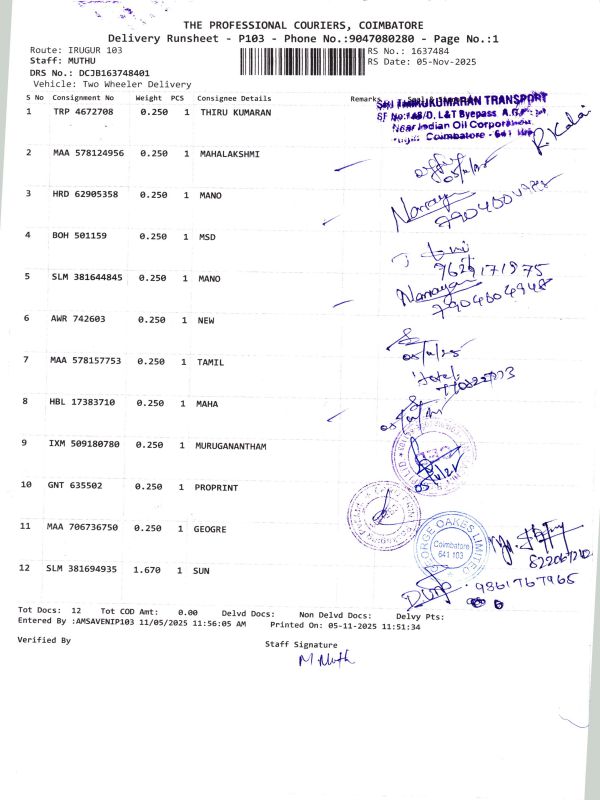 THE PROFESSIONAL COURIERS, COIMBATORE
Delivery Runsheet - P103 - Phone No.:9047080280 - Page No.:1
Route: IRUGUR 103 RS No.: 1637484
Staff: MUTHU RS Date: 05-Nov-2025
DRS No.: DCJB163748401
Vehicle: Two Wheeler Delivery
S No Consignment No Weight PCS Consignee Details Remarks
SRI THIRUKUMARAN TRANSPORT
1 TRP 4672708 0.250 1 THIRU KUMARAN
SF No:148/D, L&T Byepass
Near Indian Oil Corporation
Coimbatore - 641
R. Kalai
2 MAA 578124956 0.250 1 MAHALAKSHMI
05/11/25
3 HRD 62905358 0.250 1 MANO
Narrayan
4 BOH 501159 0.250 1 MSD
9629171975
5 SLM 381644845 0.250 1 MANO
Narrayan
7904604948
6 AWR 742603 0.250 1 NEW
05/11/25
7 MAA 578157753 0.250 1 TAMIL
Hotel
8 HBL 17383710 0.250 1 MAHA
9 IXM 509180780 0.250 1 MURUGANANTHAM
10 GNT 635502 0.250 1 PROPRINT
11 MAA 706736750 0.250 1 GEOGRE
GEORGE OAKES LIMITED
Coimbatore
641 103
12 SLM 381694935 1.670 1 SUN
9861767965
Tot Docs: 12 Tot COD Amt: 0.00 Delvd Docs: Non Delvd Docs: Delvy Pts:
Entered By :AMSAVENIP103 11/05/2025 11:56:05 AM Printed On: 05-11-2025 11:51:34
Verified By Staff Signature
M Muth